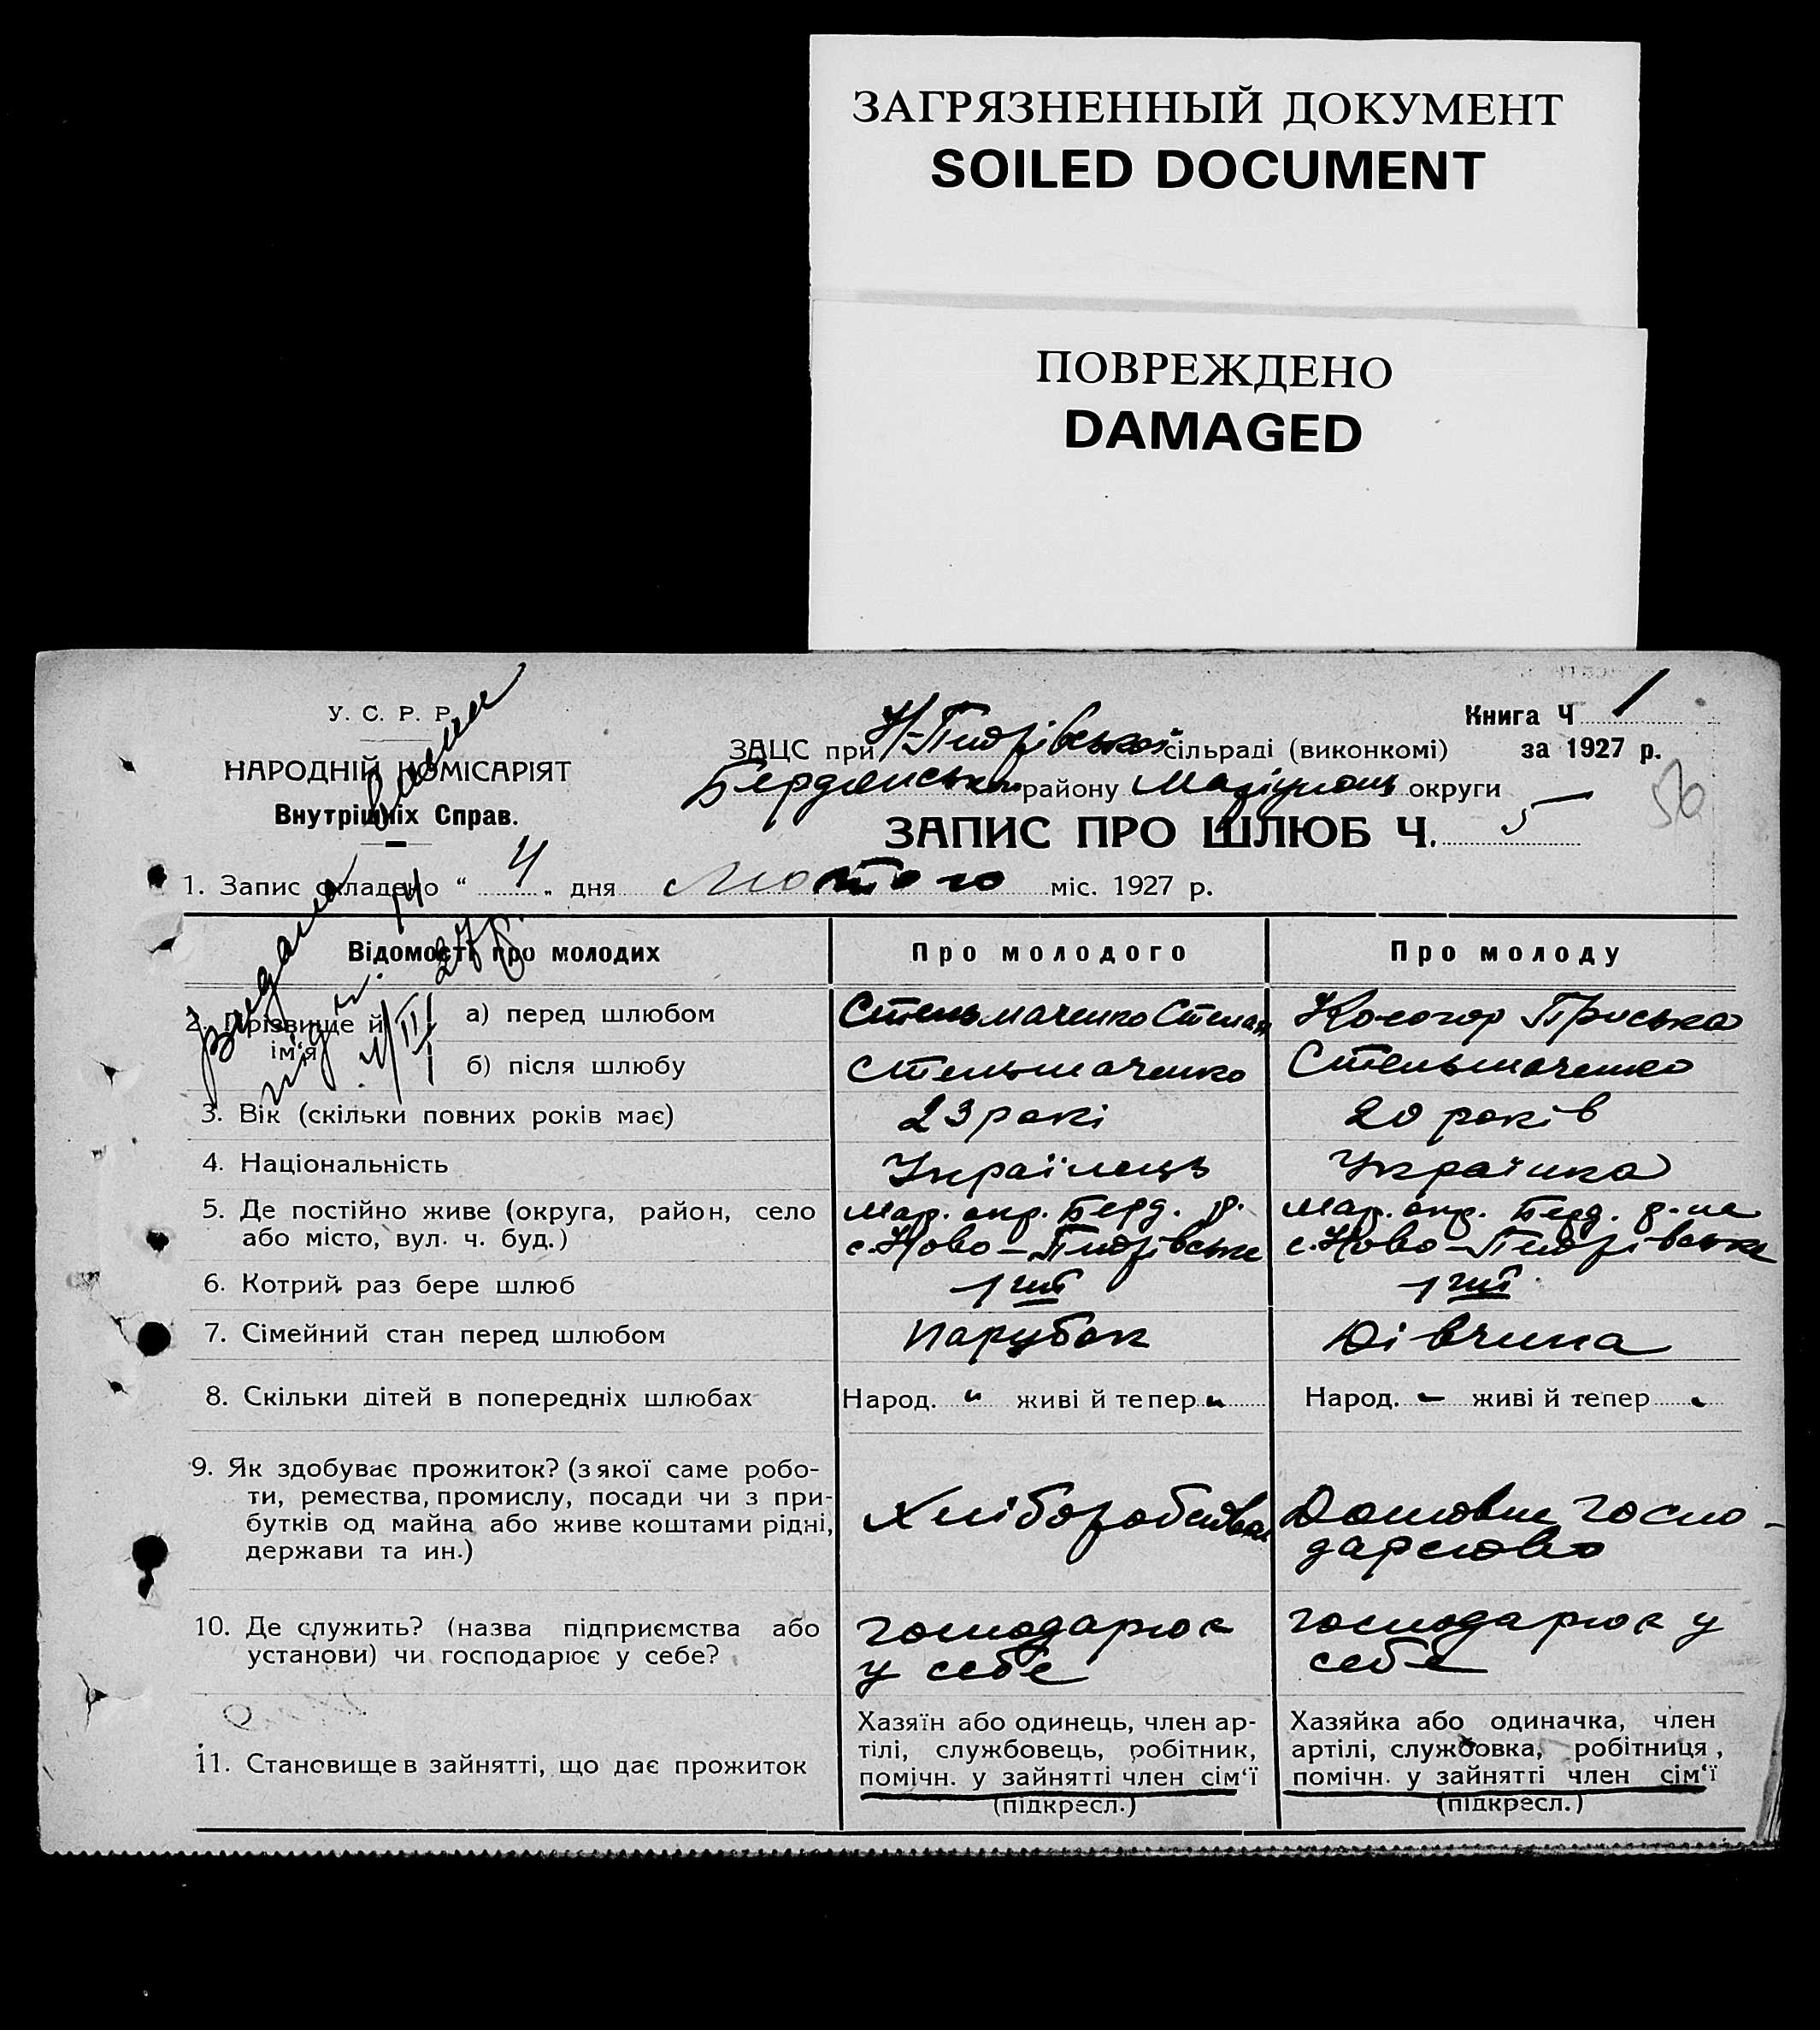 ЗАГРЯЗНЕННЫЙ ДОКУМЕНТ
SOILED DOCUMENT
ПОВРЕЖДЕНО
DAMAGED
У. С. Р. Р.
НАРОДНІЙ КОМІСАРІЯТ
Внутрішніх Справ.
Книга Ч 1
за 1927 р.
ЗАЦС при Н-Петрівської сільраді (виконкомі)
Бердянськом району Маріупольс округи
56
ЗАПИС ПРО ШЛЮБ Ч. 5
1. Запис складено “ 4 „ дня лютого міс. 1927 р.
Видана
Відомості про молодих
Про молодого
Про молоду
2. Прізвище й ім‘я
а) перед шлюбом
Стельмаченко Степан
Косогор Приська
б) після шлюбу
Стельмаченко
Стельмаченко
3. Вік (скільки повних років має)
23 рокі
20 років
4. Національність
Українець
Українка
5. Де постійно живе (округа, район, село
або місто, вул. ч. буд.)
Мар. окр. Берд. р.
с. Ново-Петрівське
Мар. окр. Берд. р-на
с. Ново-Петрівське
6. Котрий раз бере шлюб
1ий
1ий
7. Сімейний стан перед шлюбом
Парубок
Дівчина
8. Скільки дітей в попередніх шлюбах
Народ. „ живі й тепер „
Народ. - живі й тепер -
9. Як здобуває прожиток? (з якої саме робо-
ти, ремества, промислу, посади чи з при-
бутків од майна або живе коштами рідні,
держави та ин.)
Хліборобства
Домовне госпо-
дарство
10. Де служить? (назва підприємства або
установи) чи господарює у себе?
господарює
у себе
господарює у
себе
11. Становище в зайнятті, що дає прожиток
Хазяїн або одинець, член ар-
тілі, службовець, робітник,
помічн. у зайнятті член сім‘ї
(підкресл.)
Хазяйка або одиначка, член
артілі, службовка, робітниця,
помічн. у зайнятті член сім‘ї
(підкресл.)